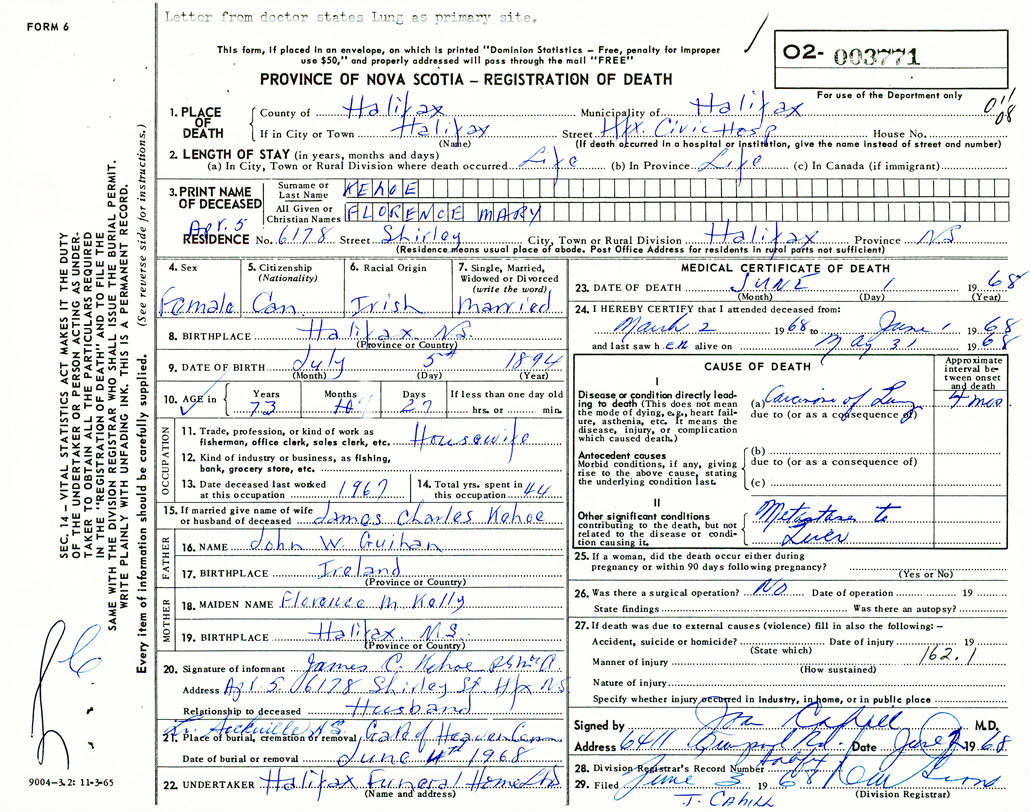 Letter from doctor states Lung as primary site.
FORM 6
This form, if placed in an envelope, on which is printed "Dominion Statistics – Free, penalty for improper
use $50," and properly addressed will pass through the mail "FREE"
PROVINCE OF NOVA SCOTIA – REGISTRATION OF DEATH
O2- 003771
For use of the Department only
011
08
1. PLACE OF DEATH
County of Halifax Municipality of Halifax
If in City or Town Halifax Street Hfx. Civic Hosp House No.
(Name) (If death occurred in a hospital or institution, give the name instead of street and number)
2. LENGTH OF STAY (in years, months and days)
(a) In City, Town or Rural Division where death occurred Life (b) In Province Life (c) In Canada (if immigrant)
3. PRINT NAME OF DECEASED
Surname or Last Name KEHOE
All Given or Christian Names FLORENCE MARY
Apt. 5
RESIDENCE No. 6178 Street Shirley City, Town or Rural Division Halifax Province NS
(Residence means usual place of abode. Post Office Address for residents in rural parts not sufficient)
4. Sex Female
5. Citizenship (Nationality) Can
6. Racial Origin Irish
7. Single, Married, Widowed or Divorced (write the word) Married
8. BIRTHPLACE Halifax N.S.
(Province or Country)
9. DATE OF BIRTH July 5th 1894
(Month) (Day) (Year)
10. AGE in Years 73 Months 10 Days 27 If less than one day old hrs. or min.
OCCUPATION
11. Trade, profession, or kind of work as fisherman, office clerk, sales clerk, etc. Housewife
12. Kind of industry or business, as fishing, bank, grocery store, etc.
13. Date deceased last worked at this occupation 1967
14. Total yrs. spent in this occupation 44
15. If married give name of wife or husband of deceased James Charles Kehoe
FATHER
16. NAME John W. Guihan
17. BIRTHPLACE Ireland
(Province or Country)
MOTHER
18. MAIDEN NAME Florence M Kelly
19. BIRTHPLACE Halifax. N.S.
(Province or Country)
20. Signature of informant James C. Kehoe
Address Apt 5. 6178 Shirley St. Hfx NS
Relationship to deceased Husband
Sackville N.S.
21. Place of burial, cremation or removal Gate of Heaven Cem
Date of burial or removal June 4th 1968
22. UNDERTAKER Halifax Funeral Home Ltd
(Name and address)
MEDICAL CERTIFICATE OF DEATH
23. DATE OF DEATH JUNE 1 1968
(Month) (Day) (Year)
24. I HEREBY CERTIFY that I attended deceased from:
March 2 1968 to June 1 1968
and last saw h.ER alive on May 31 1968
CAUSE OF DEATH
Approximate interval between onset and death
I
Disease or condition directly leading to death (This does not mean the mode of dying, e.g., heart failure, asthenia, etc. It means the disease, injury, or complication which caused death.)
(a) Carcinoma of Lung 4 mos
due to (or as a consequence of)
Antecedent causes
Morbid conditions, if any, giving rise to the above cause, stating the underlying condition last.
(b)
due to (or as a consequence of)
(c)
II
Other significant conditions contributing to the death, but not related to the disease or condition causing it.
Metastases to
Liver
25. If a woman, did the death occur either during pregnancy or within 90 days following pregnancy?
(Yes or No)
26. Was there a surgical operation? No Date of operation 19
State findings Was there an autopsy?
27. If death was due to external causes (violence) fill in also the following: –
Accident, suicide or homicide? Date of injury 19
(State which)
162.1
Manner of injury
(How sustained)
Nature of injury
Specify whether injury occurred in industry, in home, or in public place
Signed by Cahill M.D.
Address 6411 Date June 1968
28. Division Registrar's Record Number
29. Filed June 3 1968
(Division Registrar)
J. CAHILL
SEC. 14 – VITAL STATISTICS ACT MAKES IT THE DUTY
OF THE UNDERTAKER OR PERSON ACTING AS UNDER-
TAKER TO OBTAIN ALL THE PARTICULARS REQUIRED
IN THE "REGISTRATION OF DEATH" AND TO FILE THE
SAME WITH THE DIVISION REGISTRAR WHO SHALL ISSUE THE BURIAL PERMIT.
WRITE PLAINLY WITH UNFADING INK. THIS IS A PERMANENT RECORD.
Every item of information should be carefully supplied. (See reverse side for instructions.)
9004-3.2: 11-3-65